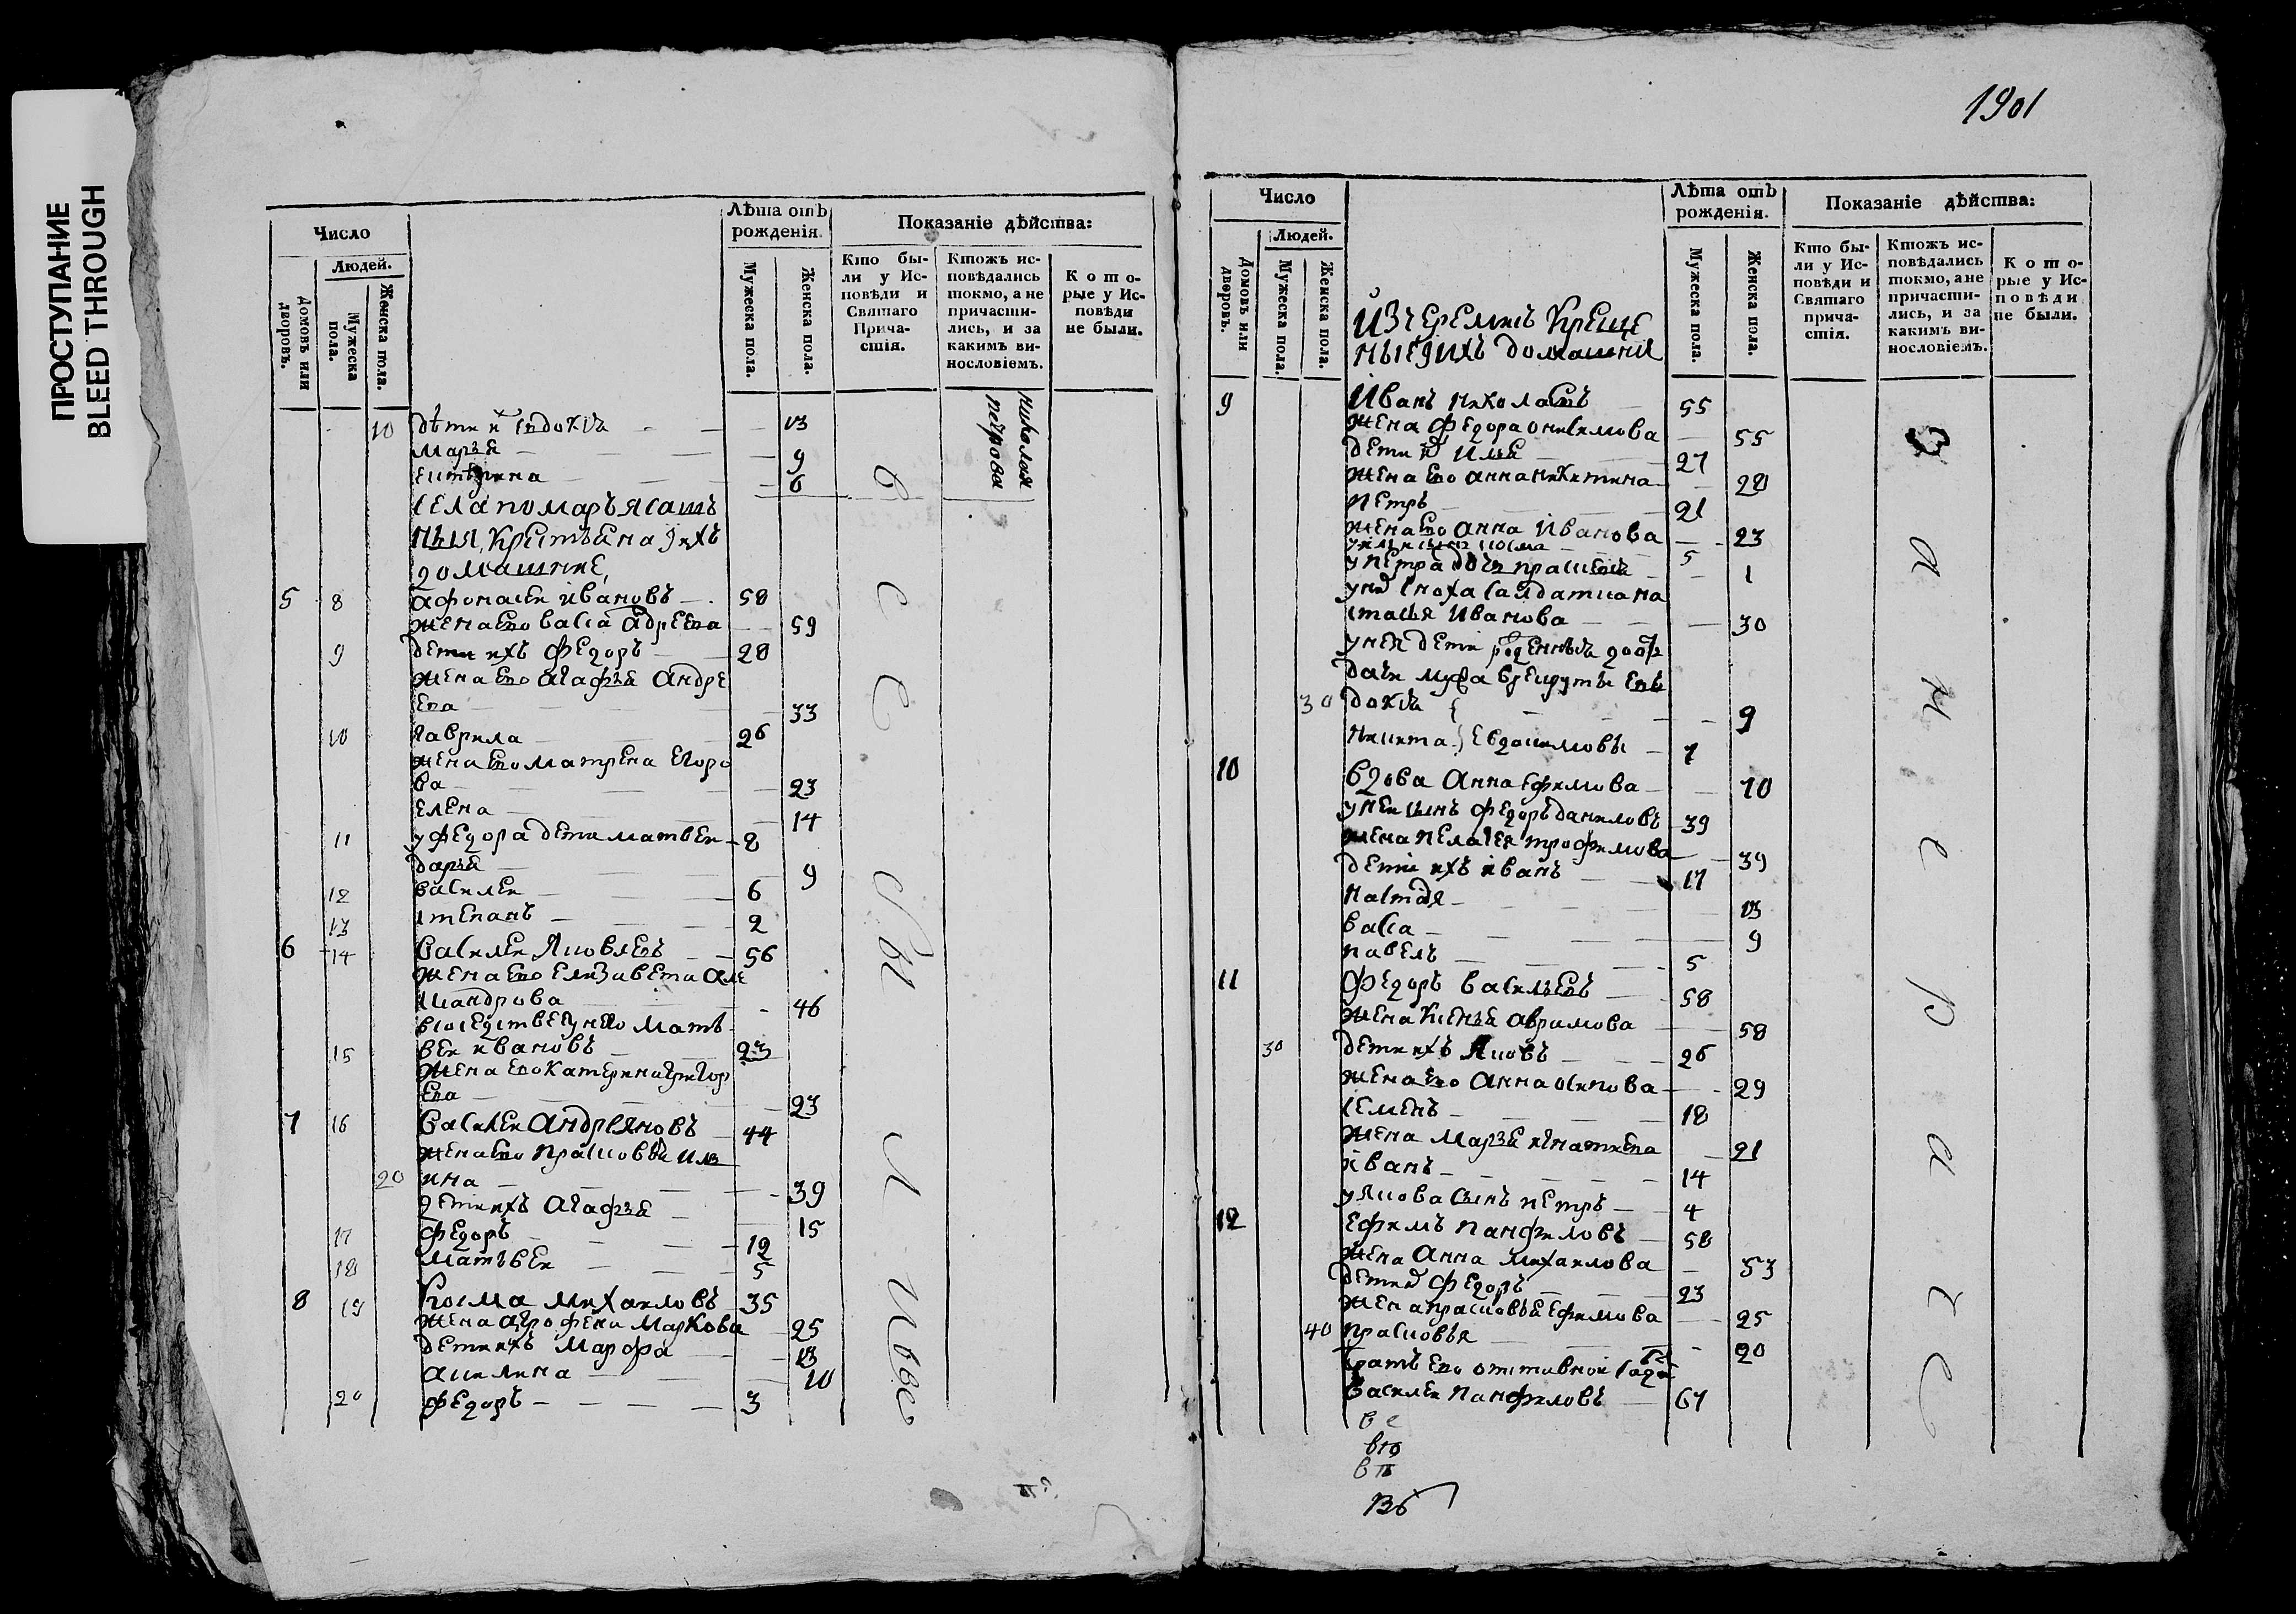 ПРОСТУПАНИЕ
BLEED THROUGH
1901
Число
Людей.
Домовъ или дворовъ.
Мужеска пола.
Женска пола.
Лѣта отъ рожденія.
Мужеска пола.
Женска пола.
Показаніе дѣйства:
Кто бы-
ли у Ис-
повѣди и
Святаго
Прича-
стія.
Ктожъ ис-
повѣдались
токмо, а не
причасти-
лись, и за
какимъ ви-
нословіемъ.
Кото-
рые у Ис-
повѣди
не были.
николая
петрова
10 дѣти и евдокiа 13
марья 9
6
села помаръ ясаш
ныя, крестьяна и ихъ
домашние,
5 8 афонасеи ивановъ 58
жена ево васса адреева 59
9 дети ихъ федоръ 28
жена ево агафья андре
ева 33
10 гаврила 26
жена ево матрена егоро
ва 23
елена 14
11 у федора дети матвеи 8
дарья 9
12 василеи 6
13 степанъ 2
6 14 василеи яковлевъ 56
жена ево елизавета але
ксандрова 46
вмат
15 веи ивановъ 23
жена ево катерина григор
ева 23
7 16 василеи андреяновъ 44
жена ево прасковья иль
20 ина 39
дети ихъ агафья 15
17 федоръ 12
18 матьвеи 5
8 19 косма михаиловъ 35
жена агрофена маркова 25
дети ихъ марфа 13
акилина 10
20 федоръ 3
Число
Людей.
Домовъ или дворовъ.
Мужеска пола.
Женска пола.
Лѣта отъ рожденія.
Мужеска пола.
Женска пола.
Показаніе дѣйства:
Кто бы-
ли у Ис-
повѣди и
Святаго
прича-
стія.
Ктожъ ис-
повѣдались
токмо, а не
причасти-
лись, и за
какимъ ви-
нословіемъ.
Кото-
рые у Ис-
повѣди
не были.
изчеремисъ креще
ныи ихъ домашнии
9 иванъ николаевъ 55
жена федора онисимова 55
дети их илья 27
жена ево анна никитина 28
петръ 21
жена ево анна иванова 23
5
у петра дочь 1
у их сноха салдатка на
стасья иванова 30
у неи дети
30 докiа 9
никита евдокимовы 7
10 вдова анна ефимова 70
у неи сынъ федоръ даниловъ 39
жена пелагея трофимова 39
дети ихъ иванъ 17
настасья 13
васса 9
павелъ 5
11 федоръ васильевъ 58
жена ксенья аврамова 58
30 дети ихъ яковъ 26
жена ево анна осипова 29
семенъ 18
жена марья игнатиева 21
иванъ 14
у якова сынъ петръ 4
12 ефимъ панфиловъ 58
жена анна михаилова 53
дети их федоръ 23
жена прасковья ефимова 25
40 прасковья 20
братъ ево отставной
василеи панфиловъ 67